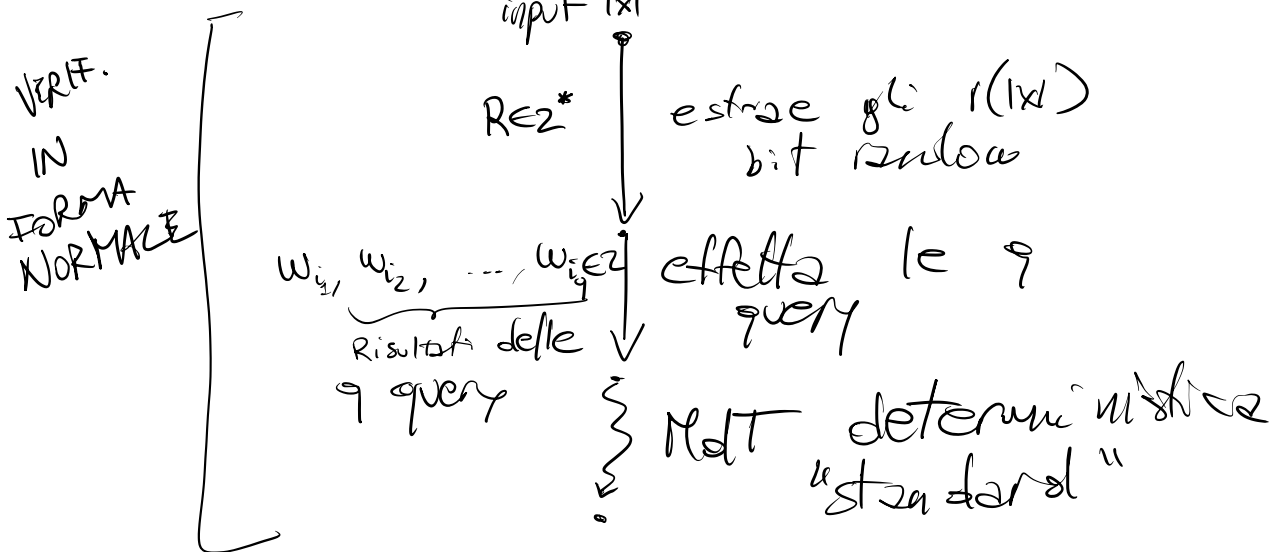 input |x|
VERIF.
IN
FORMA
NORMALE
R∈2*
estrae gli r(|x|)
bit random
w_{i_1}, w_{i_2}, ..., w_{i_q} ∈ 2
Risultati delle
q query
effetta le q
query
MdT deterministica
"standard"